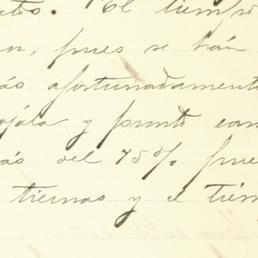 to. El tiempo
or, pues se han
ás afortunadamente
ojala y pronto cam
ás del 75% fue
tiernas y el tiem